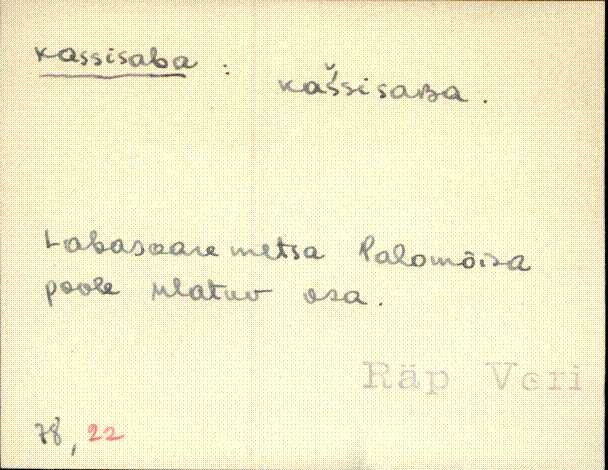 kassisaba :
kaš́sisaʙa .
Labasaare metsa Palomõisa
poole ulatuv osa .
Räp Veri
78, 22